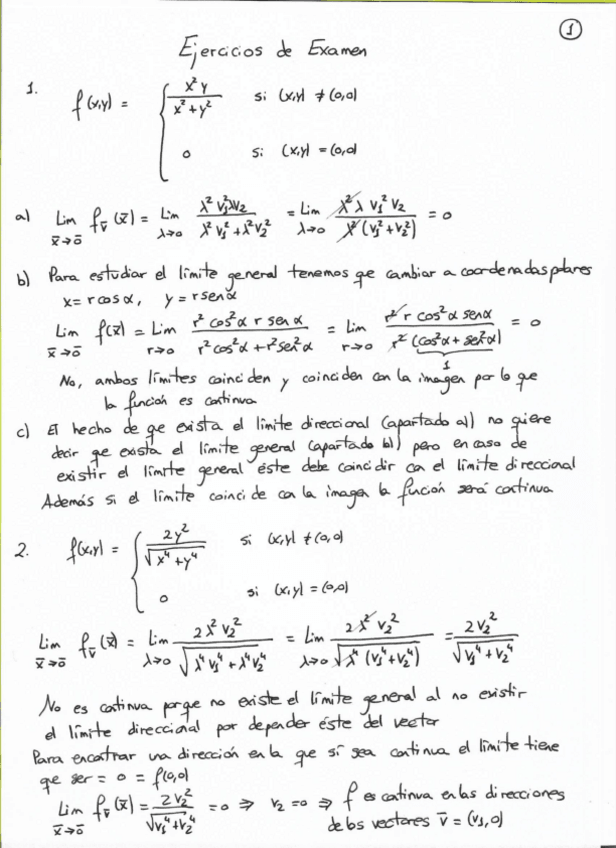 1
Ejercicios de Examen
1. f(x,y) = { x²y / (x²+y²) si (x,y) ≠ (0,0)
0 si (x,y) = (0,0)
a) Lim x̄→ō f_v̄(x̄) = Lim λ→0 λ²v₁²λv₂ / (λ²v₁²+λ²v₂²) = Lim λ→0 λ²λv₁²v₂ / (λ²(v₁²+v₂²)) = 0
b) Para estudiar el límite general tenemos qe cambiar a coordenadas polares
x = r cos α, y = r sen α
Lim x̄→ō f(x̄) = Lim r→0 r² cos²α r sen α / (r² cos²α + r² sen²α) = Lim r→0 r² r cos²α sen α / (r² (cos²α + sen²α)) = 0
1
No, ambos límites coinciden y coinciden con la imagen por lo que
la función es continua
c) El hecho de qe exista el límite direccional (apartado a)) no quiere
decir qe exista el límite general (apartado b)) pero en caso de
existir el límite general éste debe coincidir con el límite direccional
Además si el límite coincide con la imagen la función será continua
2. f(x,y) = { 2y² / √(x⁴+y⁴) si (x,y) ≠ (0,0)
0 si (x,y) = (0,0)
Lim x̄→ō f_v̄(x̄) = Lim λ→0 2λ²v₂² / √(λ⁴v₁⁴+λ⁴v₂⁴) = Lim λ→0 2λ²v₂² / √(λ⁴(v₁⁴+v₂⁴)) = 2v₂² / √(v₁⁴+v₂⁴)
No es continua porque no existe el límite general al no existir
el límite direccional por depender éste del vector
Para encontrar una dirección en la que sí sea continua el límite tiene
que ser = 0 = f(0,0)
Lim x̄→ō f_v̄(x̄) = 2v₂² / √(v₁⁴+v₂⁴) = 0 ⇒ v₂ = 0 ⇒ f es continua en las direcciones
de los vectores v̄ = (v₁,0)